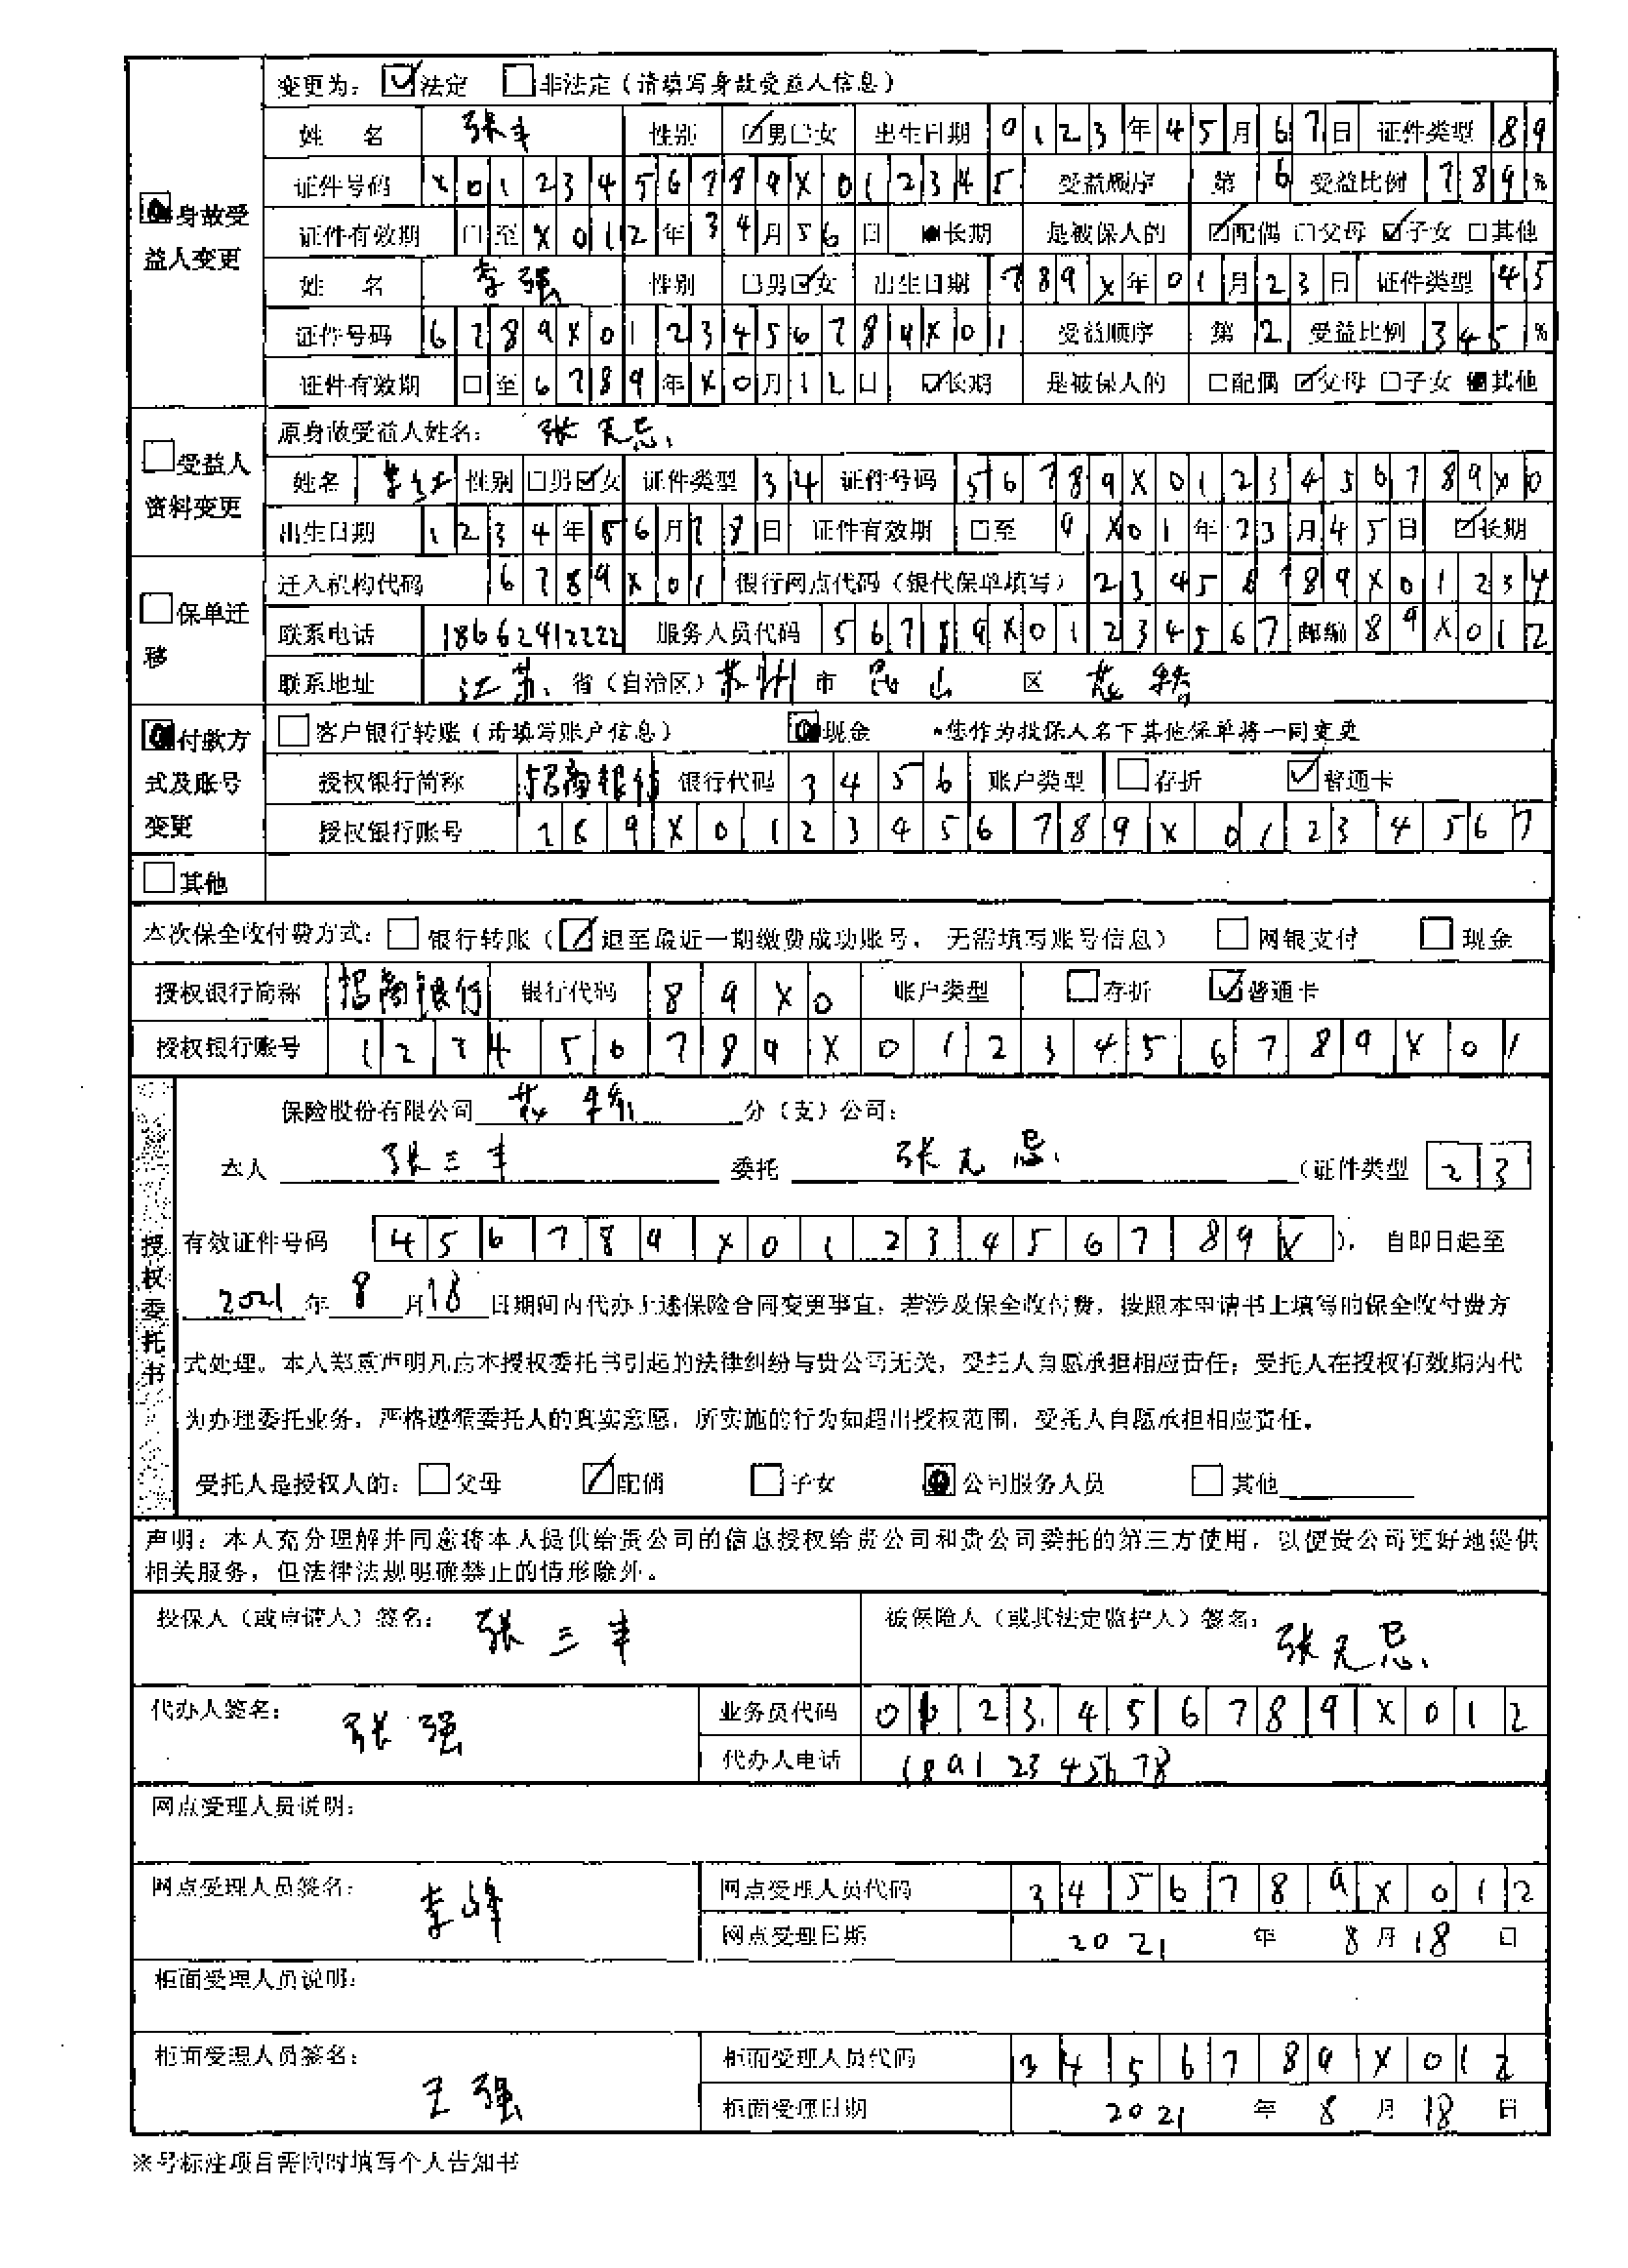 变更为：☑法定 □非法定（请填写身故受益人信息）
姓 名 张丰 性别 ☑男□女 出生日期 0123年45月67日 证件类型 89
证件号码 X0123456789X012345 受益顺序 第6 受益比例 789%
■身故受益人变更
证件有效期 □至X012年34月56日 ■长期 是被保人的 ☑配偶□父母☑子女□其他
姓 名 李强 性别 □男☑女 出生日期 789X年01月23日 证件类型 45
证件号码 6789X0123456789X01 受益顺序 第2 受益比例 345%
证件有效期 □至6789年X0月12日 ☑长期 是被保人的 □配偶☑父母□子女■其他
□受益人资料变更
原身故受益人姓名： 张无忌
姓名 性别 □男☑女 证件类型 34 证件号码 56789X0123456789X0
出生日期 1234年56月78日 证件有效期 □至 9X01年23月45日 ☑长期
□保单迁移
迁入机构代码 6789X01 银行网点代码（银代保单填写） 2345 789X01234
联系电话 18662912222 服务人员代码 56789X01234567 邮编 89X012
联系地址 江苏 省（自治区） 苏州 市 昆山 区 花桥
■付款方式及账号变更
□客户银行转账（请填写账户信息） ■现金 *您作为投保人名下其他保单将一同变更
授权银行简称 招商银行 银行代码 3456 账户类型 □存折 ☑普通卡
授权银行账号 789X0123456789X01234567
□其他
本次保全收付费方式：□银行转账（☑退至最近一期缴费成功账号，无需填写账号信息） □网银支付 □现金
授权银行简称 招商银行 银行代码 89X0 账户类型 □存折 ☑普通卡
授权银行账号 123456789X0123456789X01
授权委托书
保险股份有限公司 花桥 分（支）公司：
本人 张三丰 委托 张无忌 （证件类型 23
有效证件号码 456789X0123456789X ），自即日起至
2021 年 8 月 18 日期间内代办上述保险合同变更事宜，若涉及保全收付费，按照本申请书上填写的保全收付费方
式处理。本人郑重声明凡由本授权委托书引起的法律纠纷与贵公司无关，受托人自愿承担相应责任；受托人在授权有效期内代
为办理委托业务，严格遵循委托人的真实意愿，所实施的行为如超出授权范围，受托人自愿承担相应责任。
受托人是授权人的：□父母 ☑配偶 □子女 ■公司服务人员 □其他
声明：本人充分理解并同意将本人提供给贵公司的信息授权给贵公司和贵公司委托的第三方使用，以便贵公司更好地提供
相关服务，但法律法规明确禁止的情形除外。
投保人（或申请人）签名： 张三丰 被保险人（或其法定监护人）签名： 张无忌
代办人签名： 张强 业务员代码 0123456789X012
代办人电话 18912345678
网点受理人员说明：
网点受理人员签名： 李峰 网点受理人员代码 3456789X012
网点受理日期 2021 年 8 月 18 日
柜面受理人员说明：
柜面受理人员签名： 王强 柜面受理人员代码 3456789X012
柜面受理日期 2021 年 8 月 18 日
※号标注项目需同时填写个人告知书